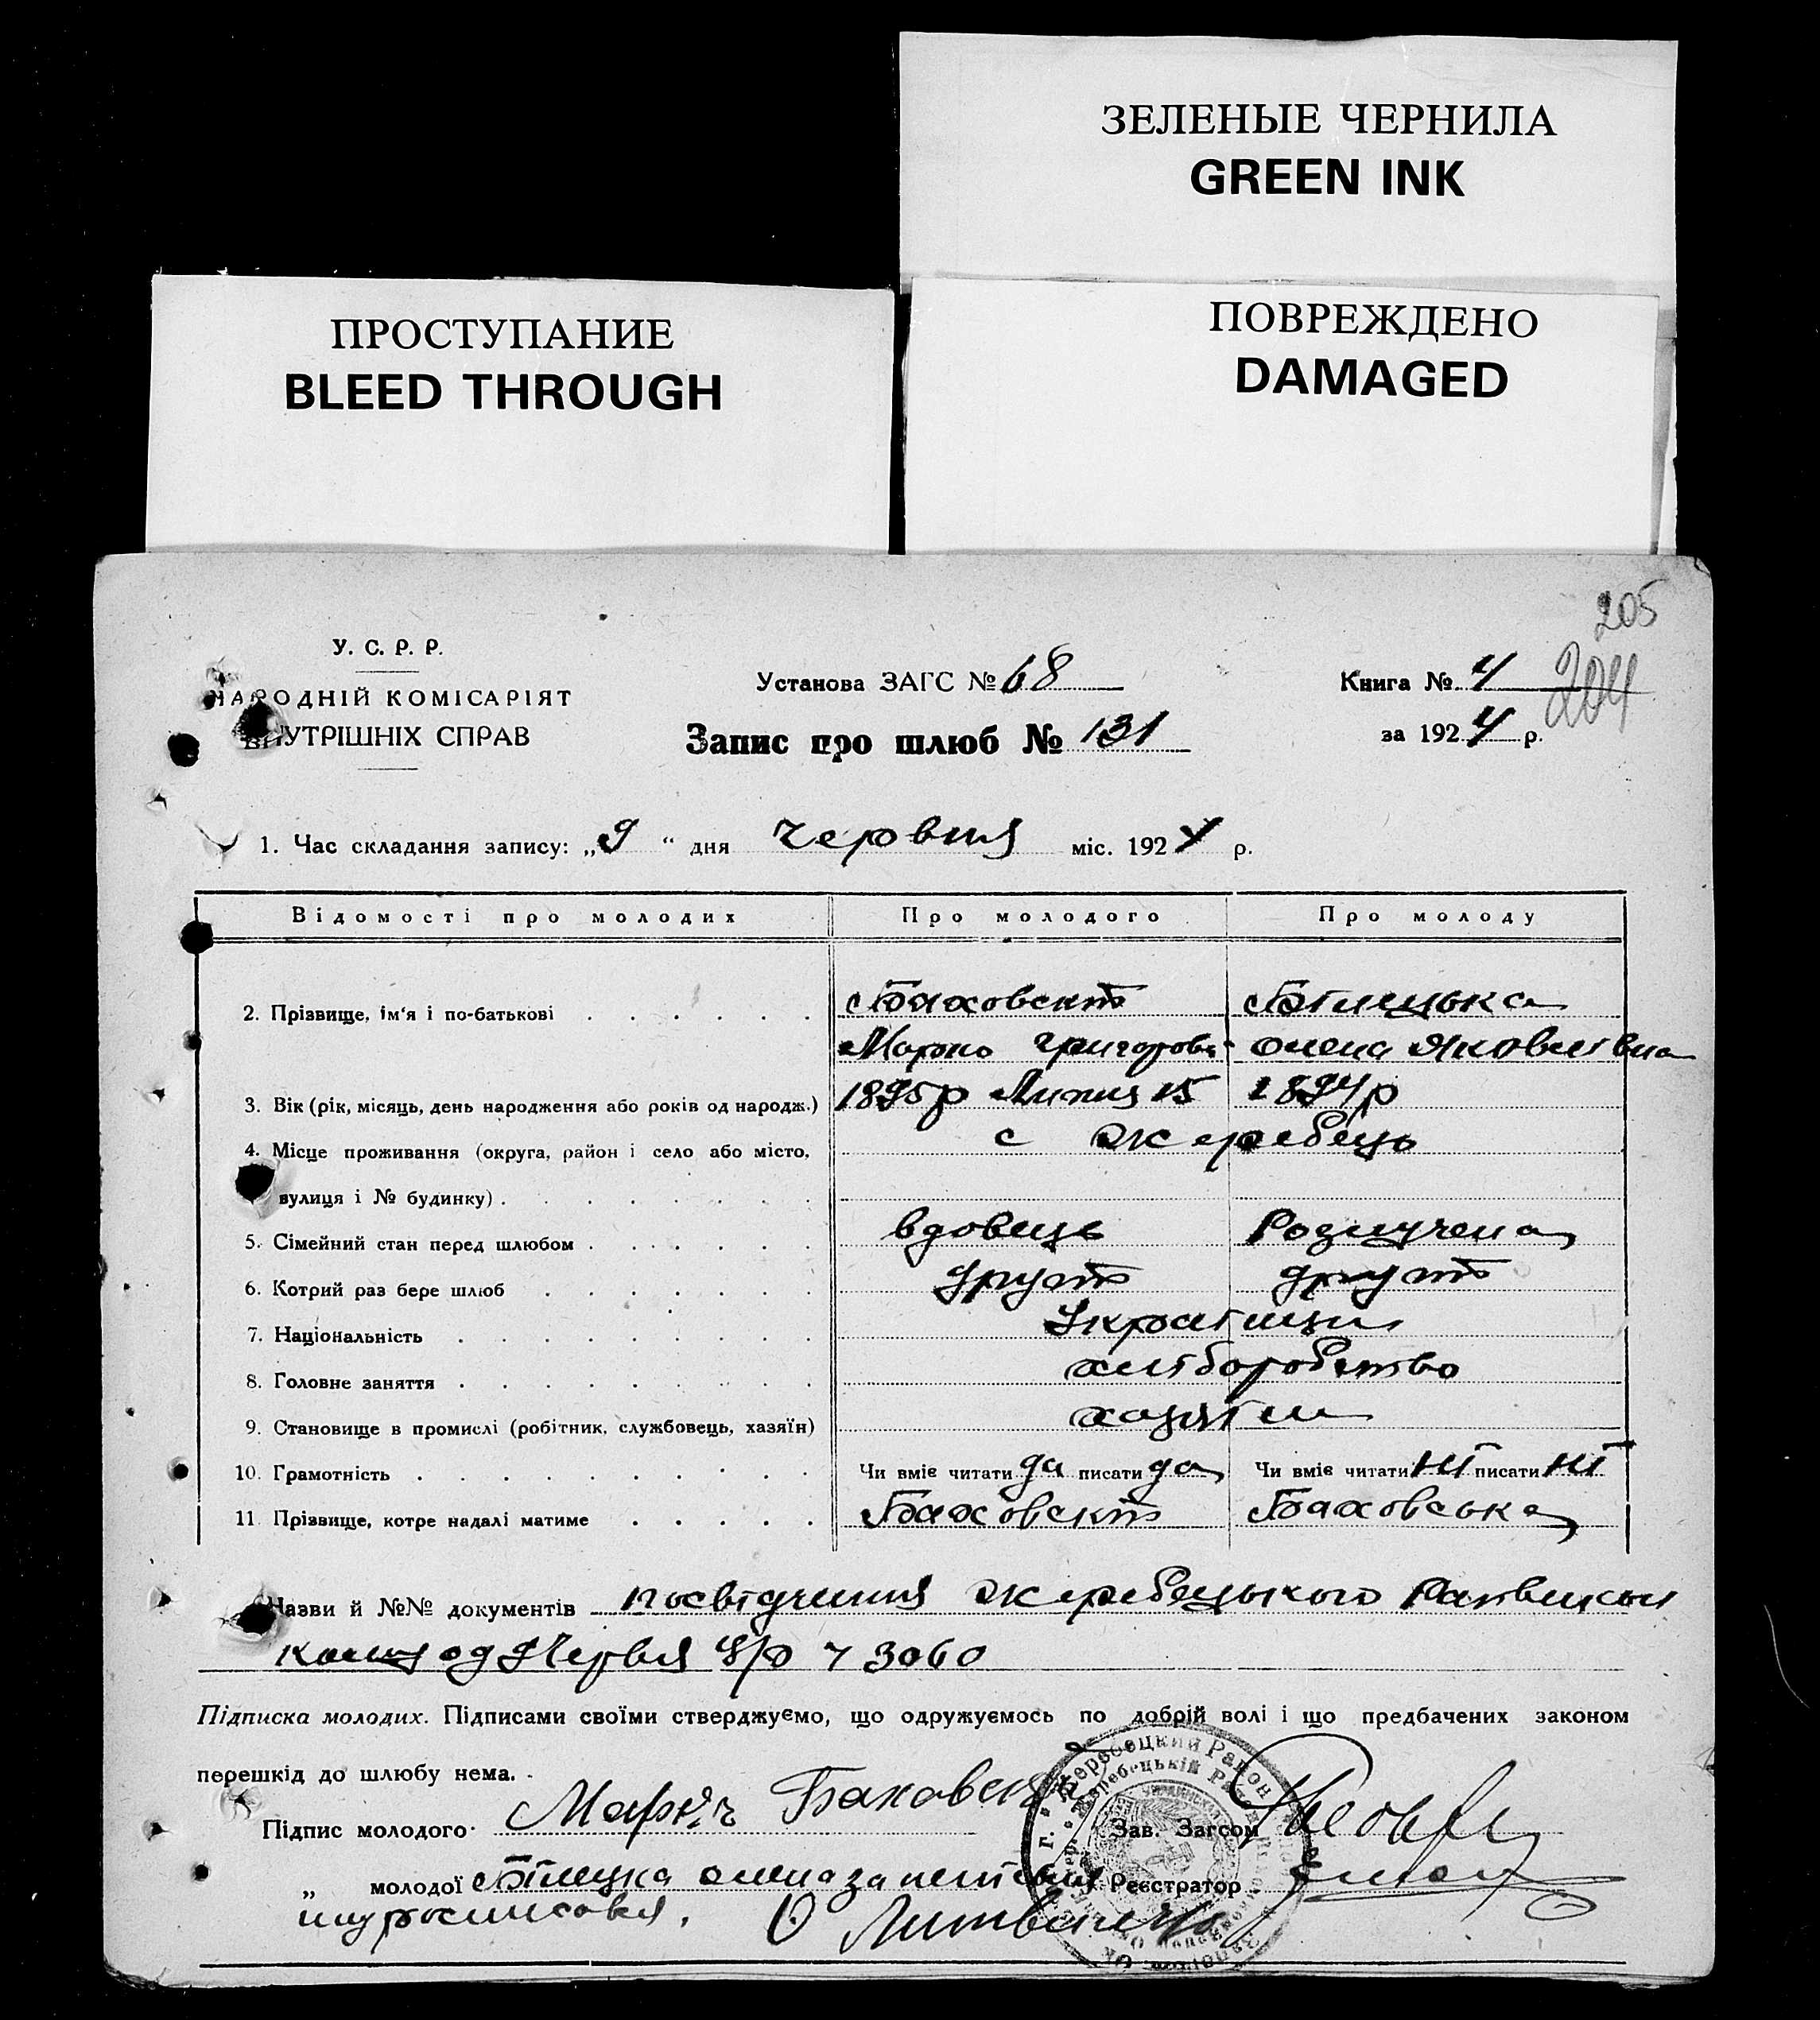 ЗЕЛЕНЫЕ ЧЕРНИЛА
GREEN INK
ПРОСТУПАНИЕ
BLEED THROUGH
ПОВРЕЖДЕНО
DAMAGED
205
204
У. С. Р. Р.
НАРОДНІЙ КОМІСАРІЯТ
ВНУТРІШНІХ СПРАВ
Установа ЗАГС № 68
Запис про шлюб № 131
Книга № 4
за 1924 р.
1. Час складання запису: „9 “ дня червня міс. 1924 р.
Відомості про молодих Про молодого Про молоду
2. Прізвище, ім'я і по-батькові Баховскій Білецька
Марко Григоров Олена Яковлівна
3. Вік (рік, місяць, день народження або років од народж.) 1895р Липня 15 1894р
4. Місце проживання (округа, район і село або місто, с Жеребець
вулиця і № будинку)
5. Сімейний стан перед шлюбом вдовець Розлучена
6. Котрий раз бере шлюб другий другий
7. Національність Українці
8. Головне заняття хліборобство
9. Становище в промислі (робітник, службовець, хазяїн) хазяїн
10. Грамотність Чи вміє читати да писати да Чи вміє читати ні писати ні
11 Прізвище, котре надалі матиме Баховскій Баховська
Назви й №№ документів посвідчення Жеребецького
од 9 Червня ч 3060
Підписка молодих. Підписами своїми стверджуємо, що одружуємось по добрій волі і що предбачених законом
перешкід до шлюбу нема.
Підпис молодого Баховский Зав. Загсом
„ молодої Білецка Олена за Реєстратор
росписався. О Литвин
Жеребецкий Район
Жеребецькій